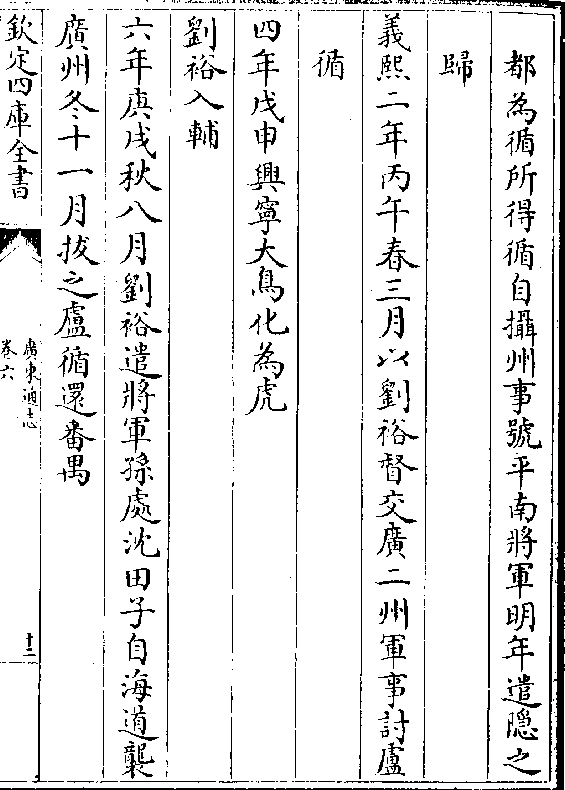 都為循所得循自攝州事號平南將軍明年遣隠之
歸
義熙二年丙午春三月以劉裕督交廣二州軍事討盧
循
四年戊申興寧大鳥化為虎
劉裕入輔
六年庚戌秋八月劉裕遣將軍孫處沈田子自海道襲
廣州冬十一月拔之盧循還番禺
欽定四庫全書
廣東通志
卷六
十二